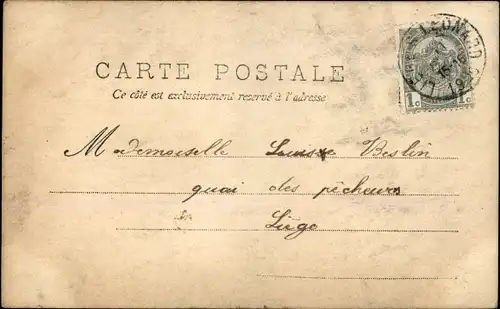 CARTE POSTALE
Ce côté est exclusivement reservé à l'adresse
1c 1c
Mademoiselle Louise Beslin
quai des pêcheurs
Liége